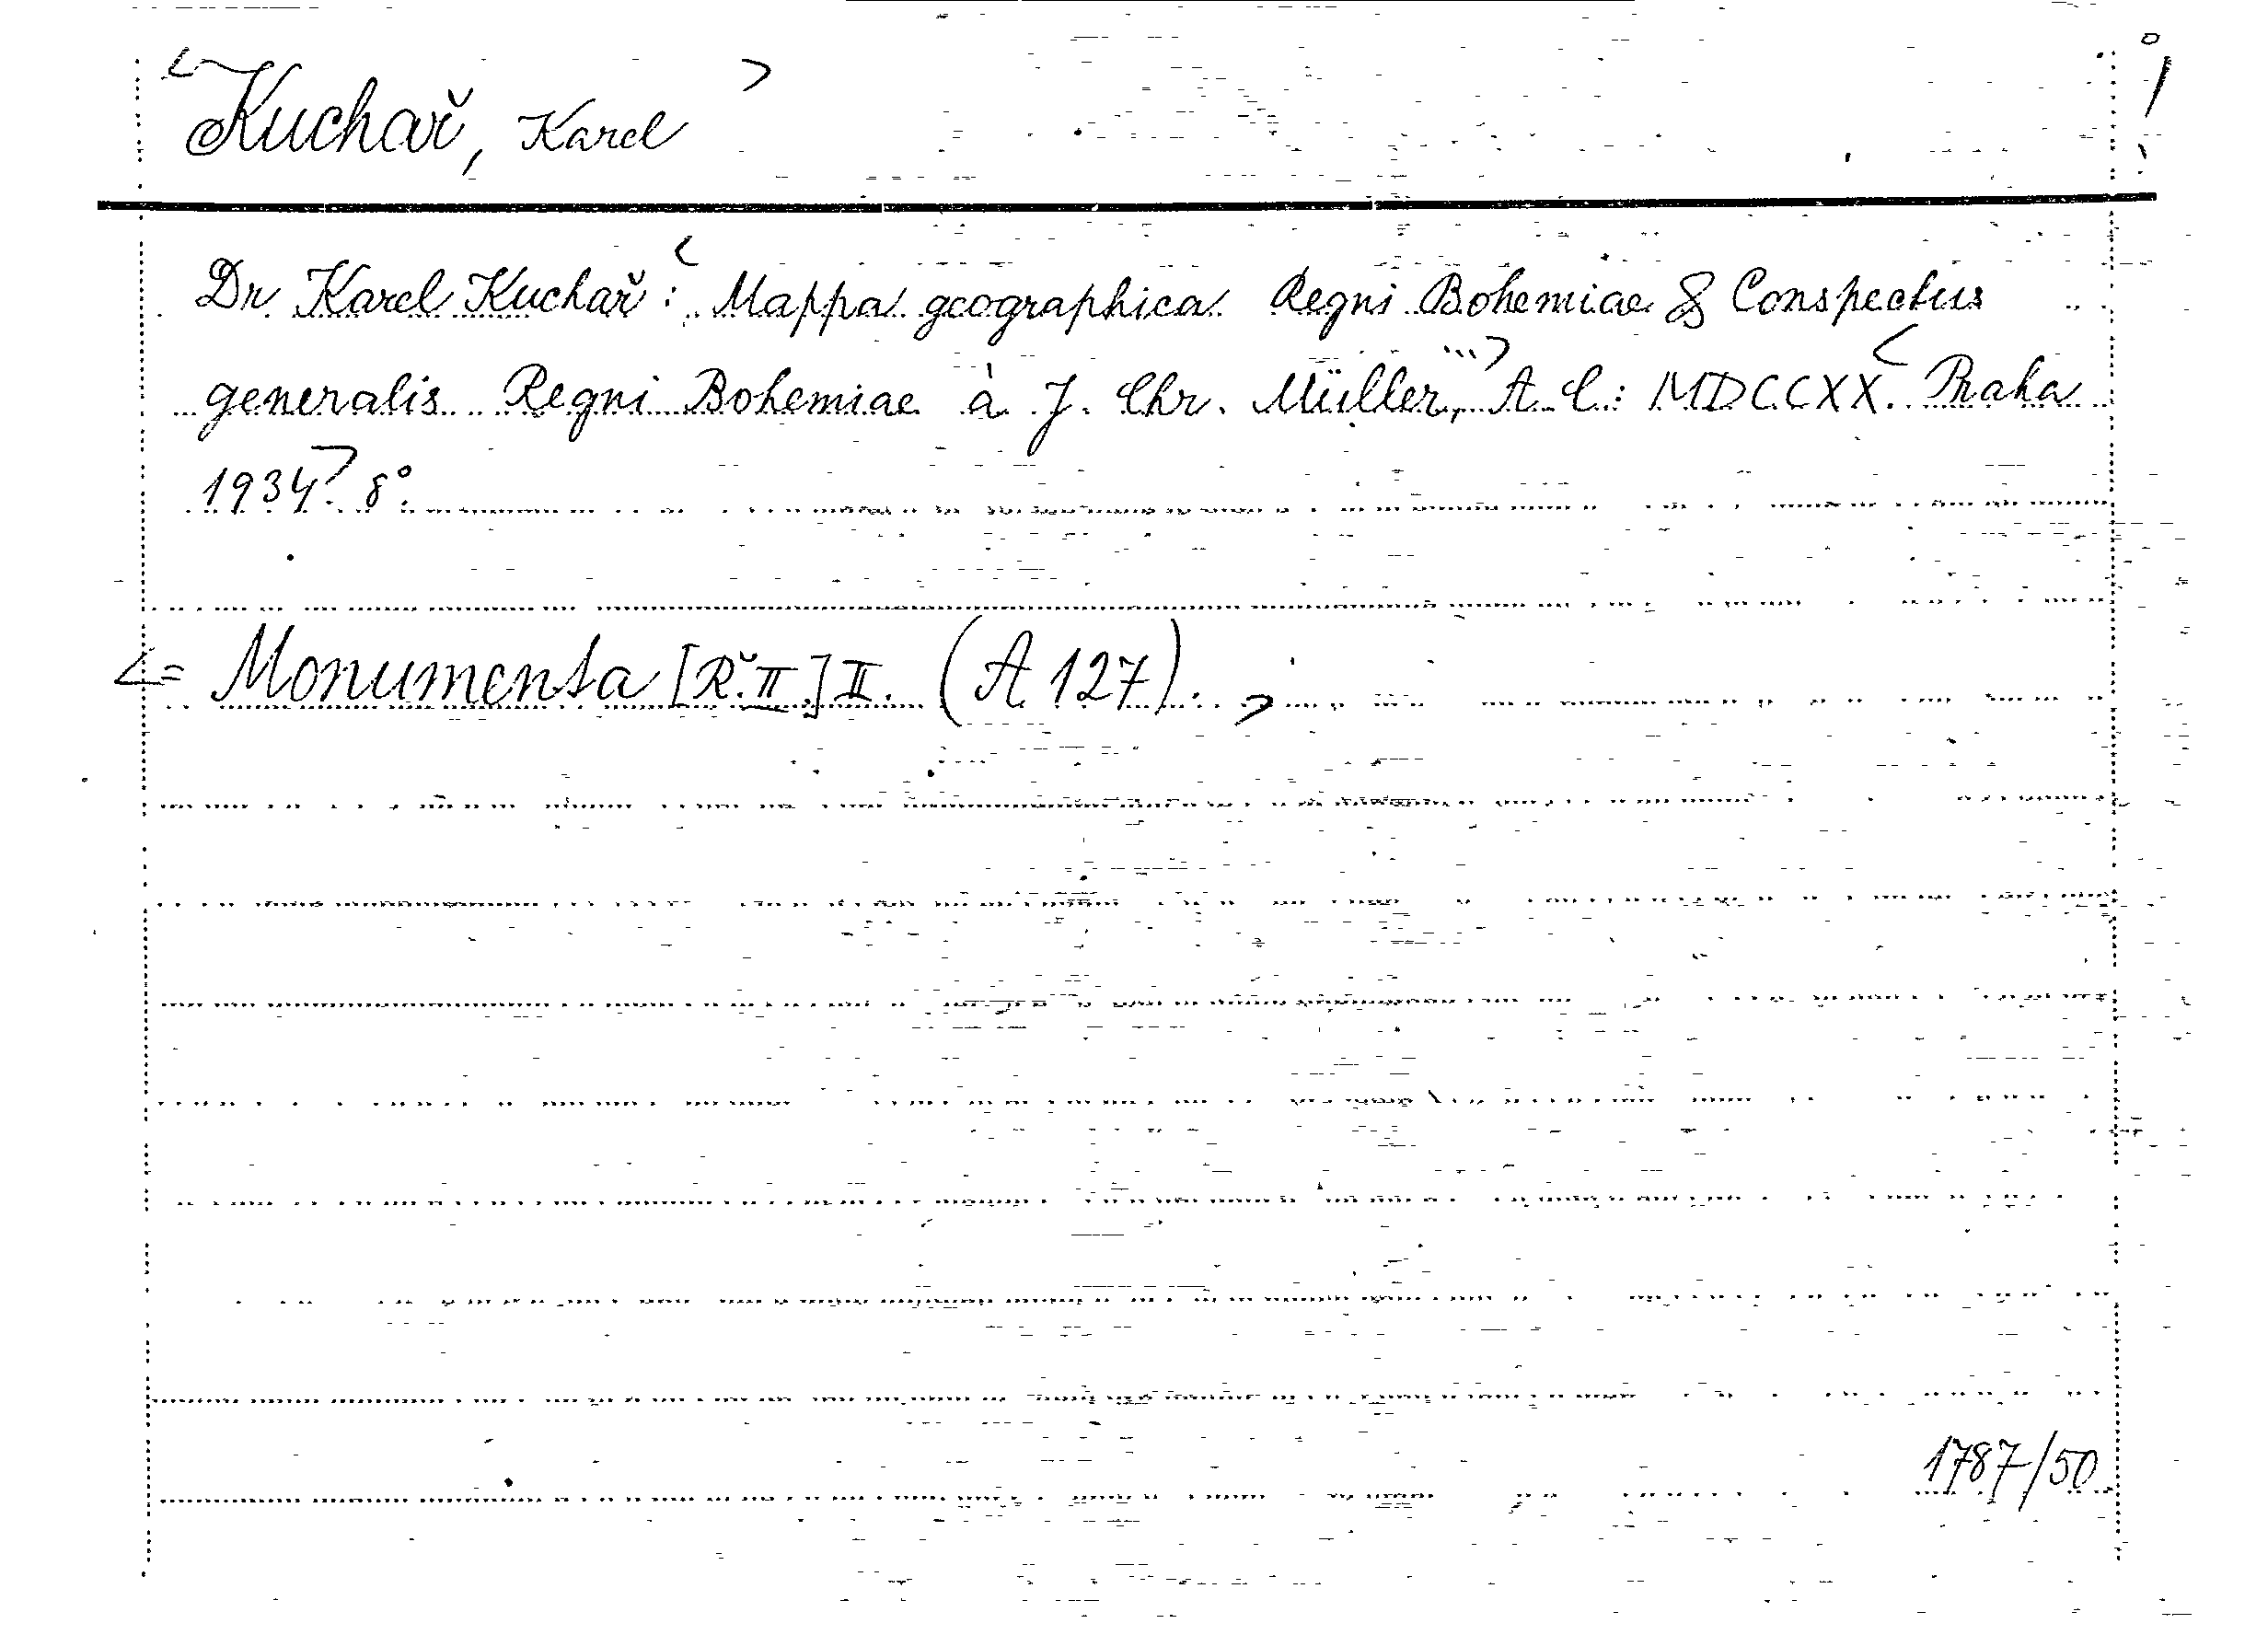 <Kuchař, Karel>
Dr Karel Kuchař: <Mappa geographica Regni Bohemiae & Conspectus
generalis Regni Bohemiae à J. Chr. Müller, ...> A. C.: MDCCXX. <Praha
1934>. 8°.
<= Monumenta [Ř. II.] II. (A 127). >
1787/50